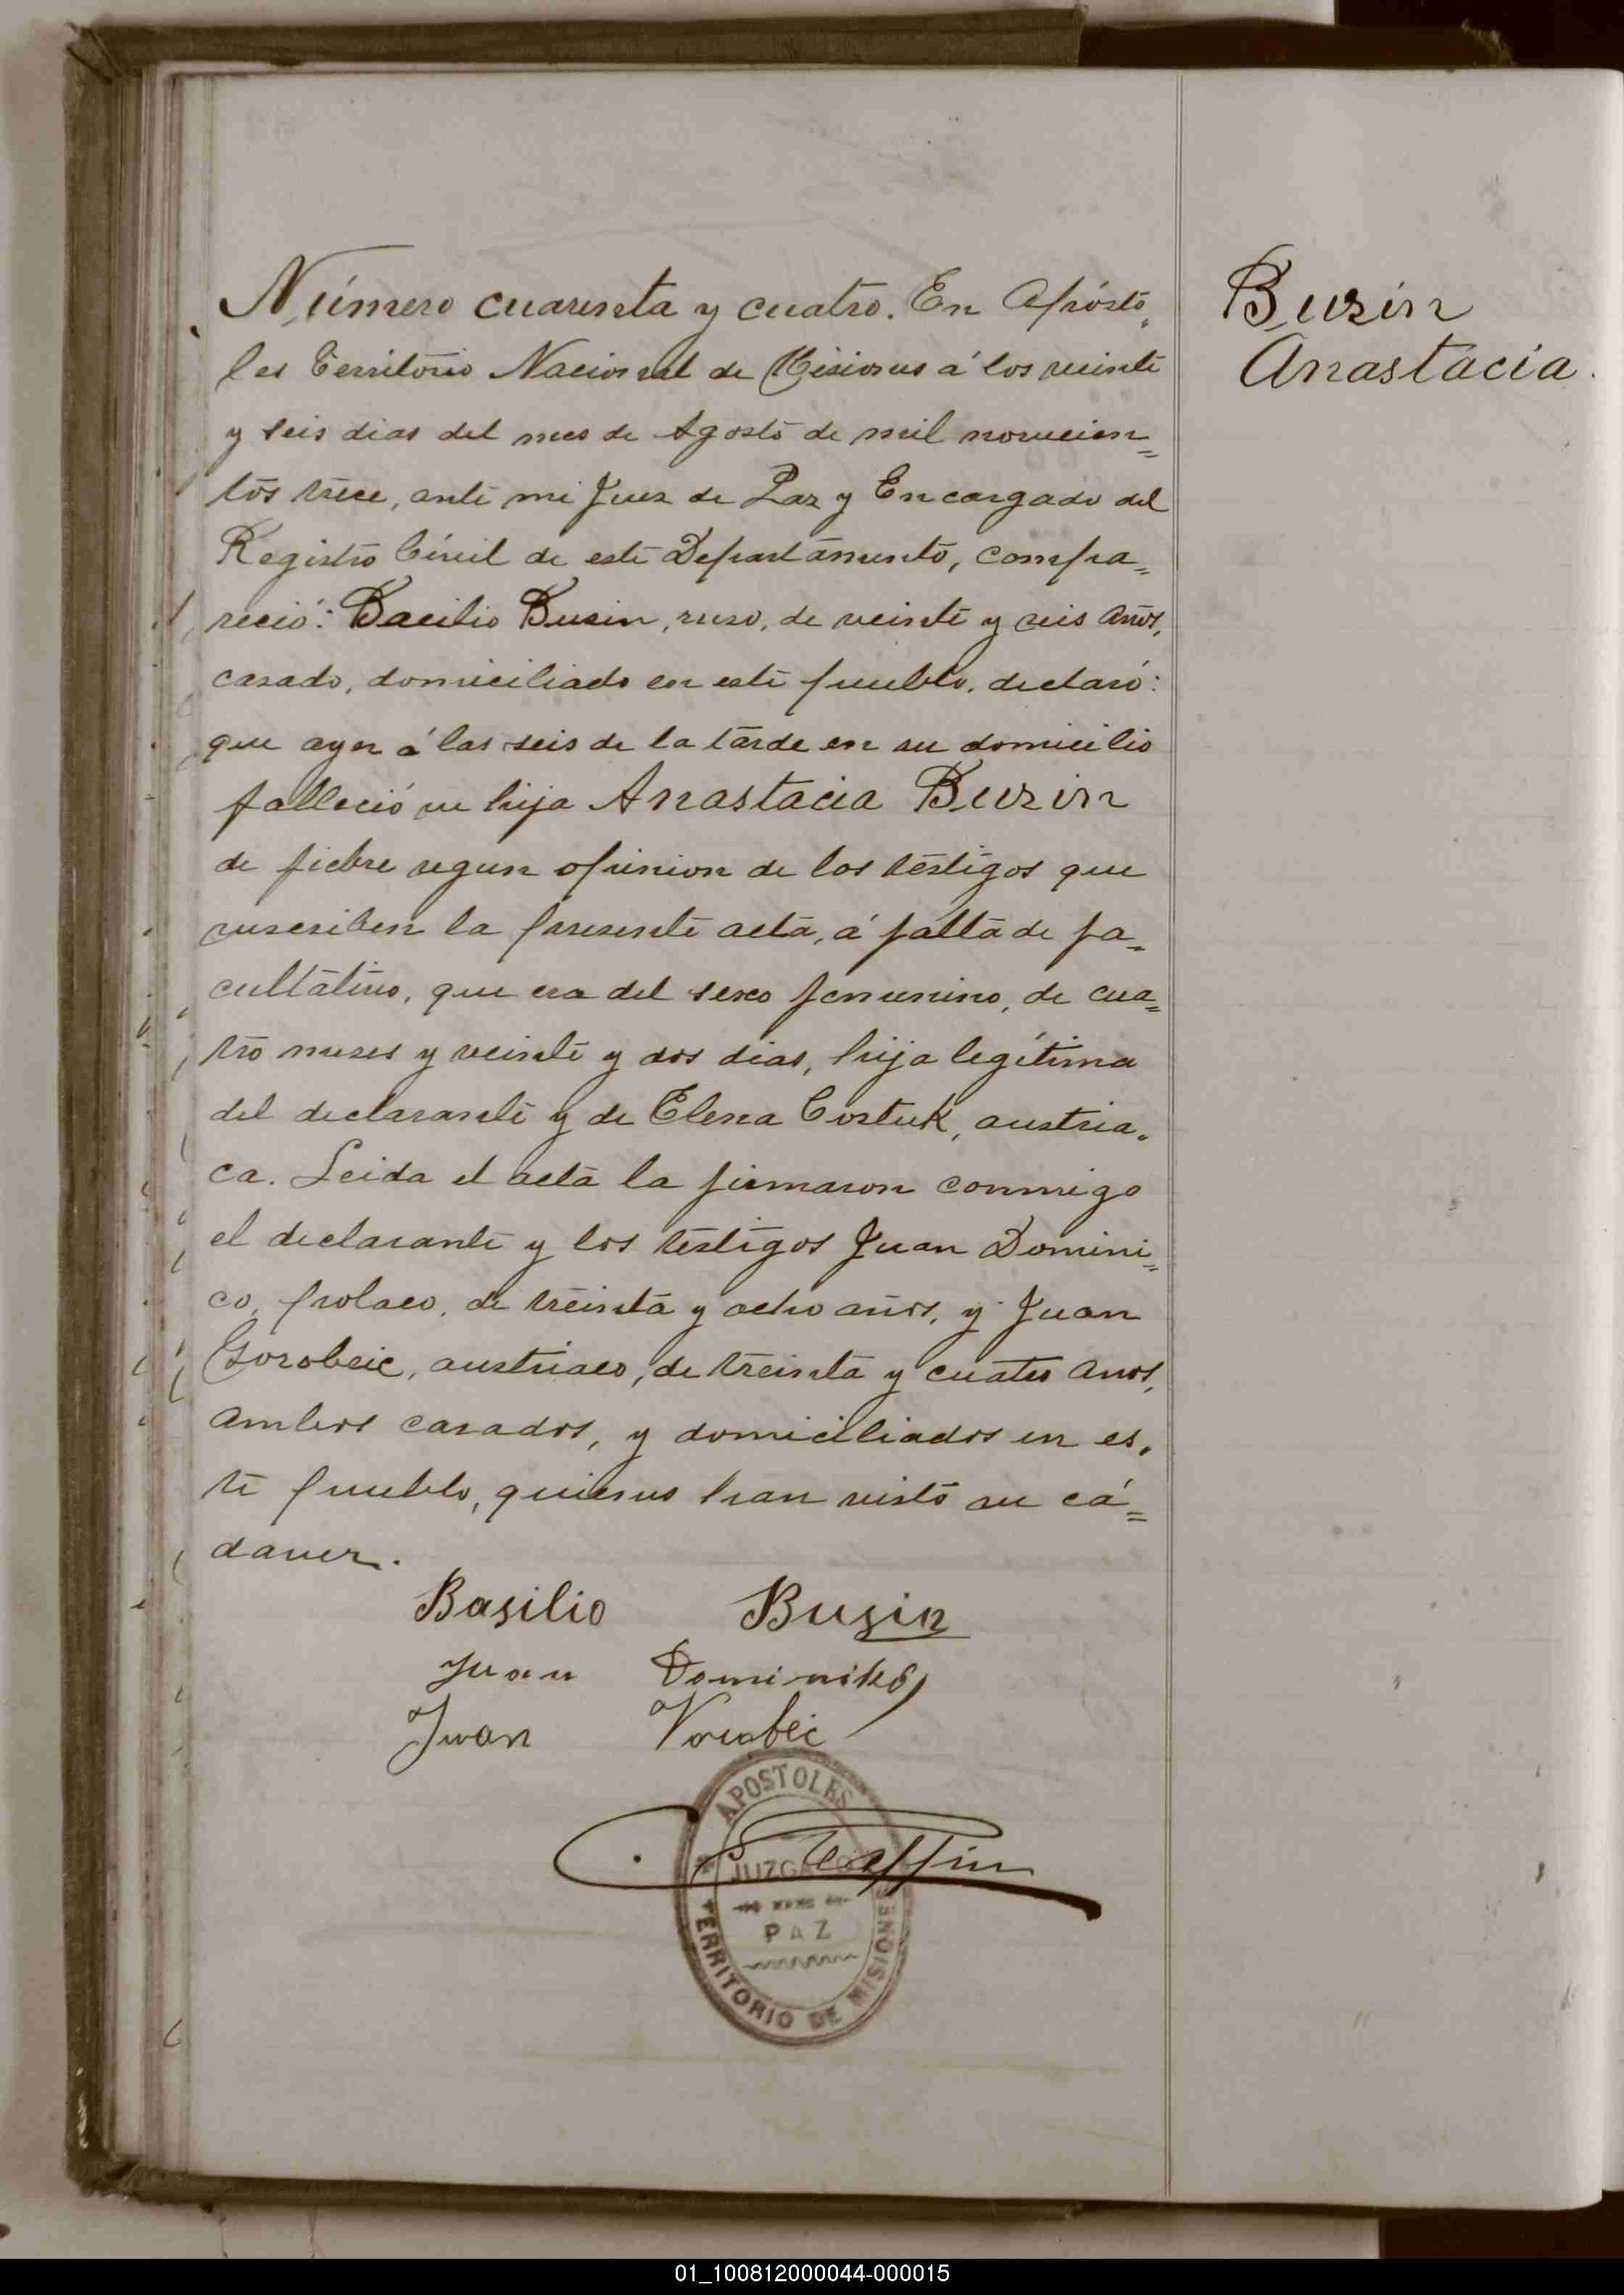 Número cuarenta y cuatro. En Apósto„
les Territorio Nacional de Misiones á los veinte
y seis dias del mes de Agosto de mil novecien=
tos trece, ante mi Juez de Paz y Encargado del
Registro Civil de este Departamento, compa=
reció: Bacilio Busin, ruso, de veinte y seis años,
casado, domiciliado en este pueblo, declaró:
que ayer á las seis de la tarde en su domicilio
falleció su hija Anastacia Buzin
de fiebre segun opinion de los testigos que
suscriben la presente acta, á falta de fa=
cultativo, que era del sexo femenino, de cua=
tro meses y veinte y dos dias, hija legítima
del declarante y de Elena Costuk, austria„
ca. Leida el acta la firmaron conmigo
el declarante y los testigos Juan Domini=
co, polaco, de treinta y ocho años, y Juan
Gorobeic, austriaco, de treinta y cuatro años,
ambos casados, y domiciliados en es„
te pueblo, quienes han visto su cá=
daver.
Buzin
Anastacia.
Basilio Busin
Juan Dominikó
Iwan Vorobeic
APOSTOLES
JUZGADO
PAZ
TERRITORIO DE MISIONES
01_100812000044-000015